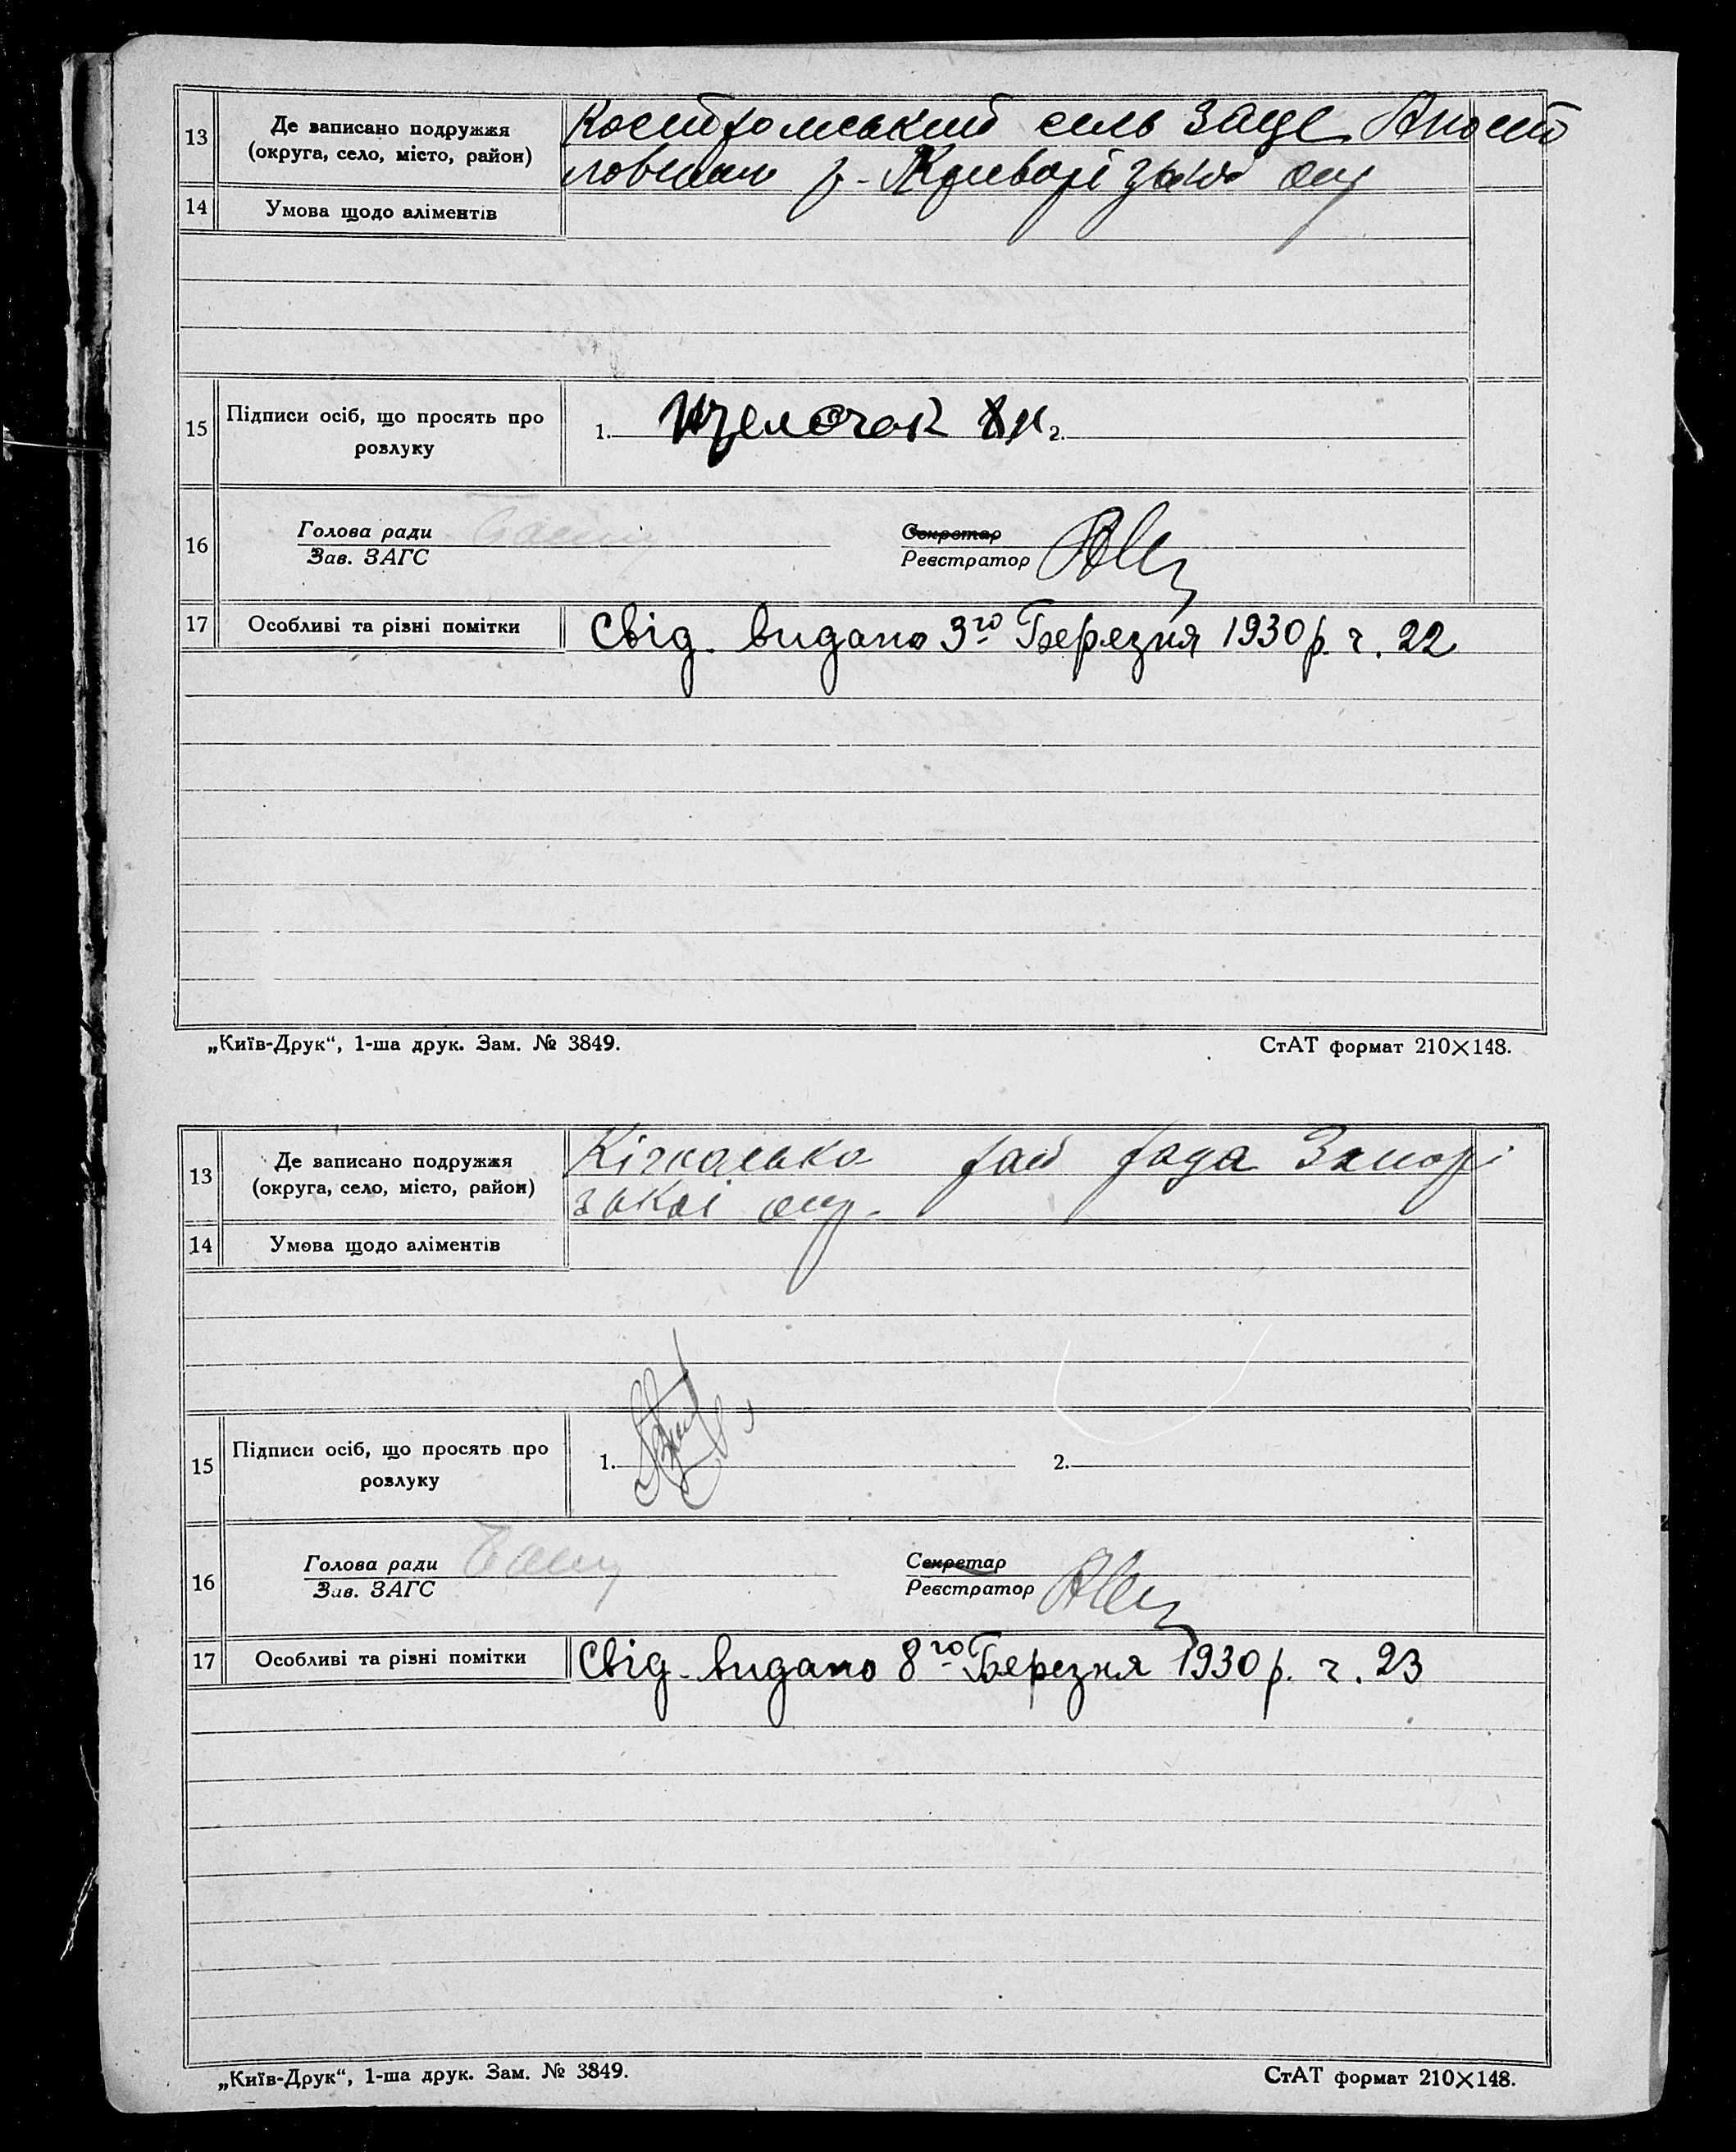 13 Де записано подружжя Костромський сель ЗАГС Апост
(округа, село, місто, район) ловськ р- Криворізької окр
14 Умова щодо аліментів
15 Підписи осіб, що просять про
розлуку 1. 2.
16 Голова ради Секретар
Зав. ЗАГС Реєстратор
17 Особливі та різні помітки Свід. видано 3го Березня 1930 р. ч. 22
„Київ-Друк“, 1-ша друк. Зам. № 3849. СтАТ формат 210×148.
13 Де записано подружжя Кічкаська рай рада Запорі
(округа, село, місто, район) зької окр.
14 Умова щодо аліментів
15 Підписи осіб, що просять про
розлуку 1. 2.
16 Голова ради Секретар
Зав. ЗАГС Реєстратор
17 Особливі та різні помітки Свід. видано 8го Березня 1930 р. ч. 23
„Київ-Друк“, 1-ша друк. Зам. № 3849. СтАТ формат 210×148.